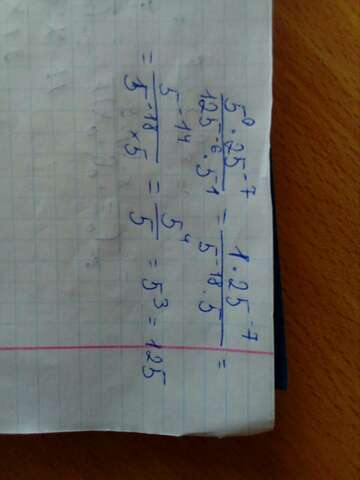 5⁰ · 25⁻⁷ / 125⁻⁶ · 5¹ = 1 · 25⁻⁷ / 5⁻¹⁸ · 5 =
= 5⁻¹⁴ / 5⁻¹⁸ × 5 = 5⁴ / 5 = 5³ = 125